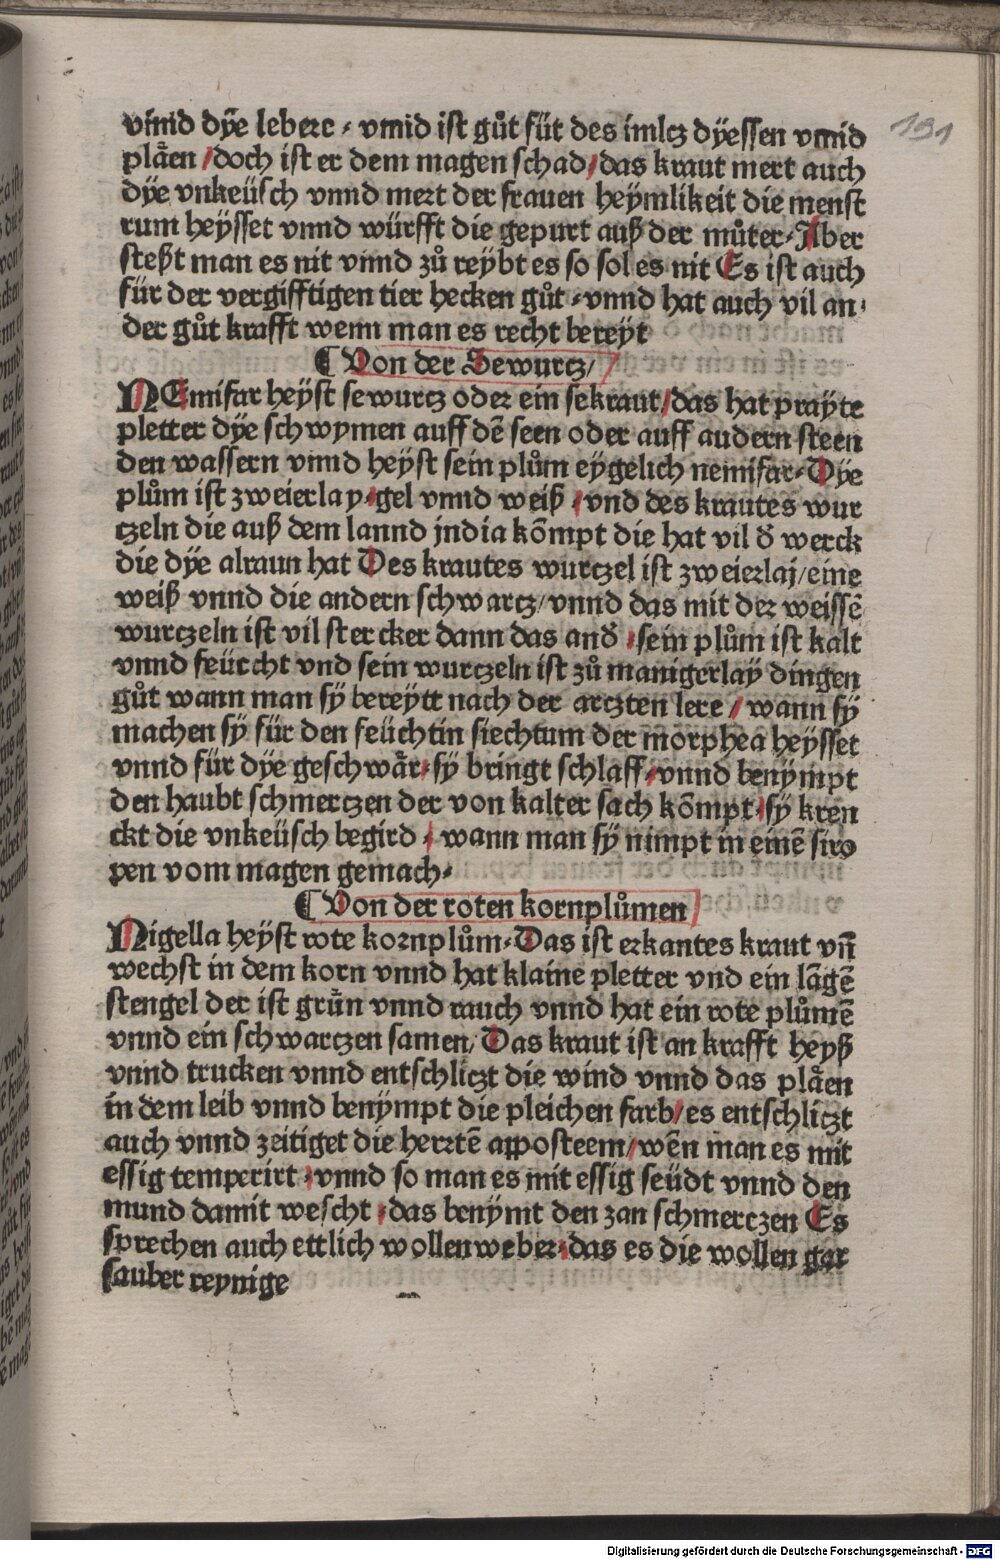 191
vnnd dÿe lebere / vnnd ist gůt für des imlcz dÿessen vnnd
pläen / doch ist er dem magen schad / das kraut mert auch
dÿe vnkeüsch vnnd mert der frauen heÿmlikeit die menst
rum heÿsset vnnd würfft die gepurt auß der můter / Aber
steßt man es nit vnnd zů reÿbt es so sol es nit Es ist auch
für der vergifftigen tier hecken gůt / vnnd hat auch vil an /
der gůt krafft wenn man es recht bereÿt
¶ Von der Sewurcz /
NEmifar heÿst sewurcz oder ein sekraut / das hat praÿte
pletter dÿe schwymen auff dē seen oder auff audern steen
den wassern vnnd heÿst sein plům eÿgelich nemifar / Dÿe
plům ist zweierlay / gel vnnd weiß / vnd des krautes wur
czeln die auß dem lannd jndia kōmpt die hat vil d̄ werck
die dÿe alraun hat Des krautes wurczel ist zweierlaj / eine
weiß vnnd die andern schwarcz / vnnd das mit der weissē
wurczeln ist vil stercker dann das and̄ / sein plům ist kalt
vnnd feücht vnd sein wurczeln ist zů manigerlaÿ dingen
gůt wann man sÿ bereÿtt nach der arczten lere / wann sÿ
machen sÿ für den feüchtin siechtum der morphea heÿsset
vnnd für dÿe geschwär / sÿ bringt schlaff / vnnd benÿmpt
den haubt schmerczen der von kalter sach kōmpt / sÿ kren
ckt die vnkeüsch begird / wann man sÿ nimpt in einē siro
pen vom magen gemach /
¶ Von der roten kornplůmen
Nigella heÿst rote kornplům / Das ist erkantes kraut vn̄
wechst in dem korn vnnd hat klaine pletter vnd ein lāgē
stengel der ist grün vnnd rauch vnnd hat ein rote plůmē
vnnd ein schwarczen samen / Das kraut ist an krafft heÿß
vnnd trucken vnnd entschliczt die wind vnnd das pläen
in dem leib vnnd benÿmpt die pleichen farb / es entschliczt
auch vnnd zeitiget die herrtē apposteem / wēn man es mit
essig temperirt / vnnd so man es mit essig seüdt vnnd den
mund damit wescht / das benÿmt den zan schmerczen Es
sprechen auch ettlich wollenweber / das es die wollen gar
sauber reynige
Digitalisierung gefördert durch die Deutsche Forschungsgemeinschaft - DFG